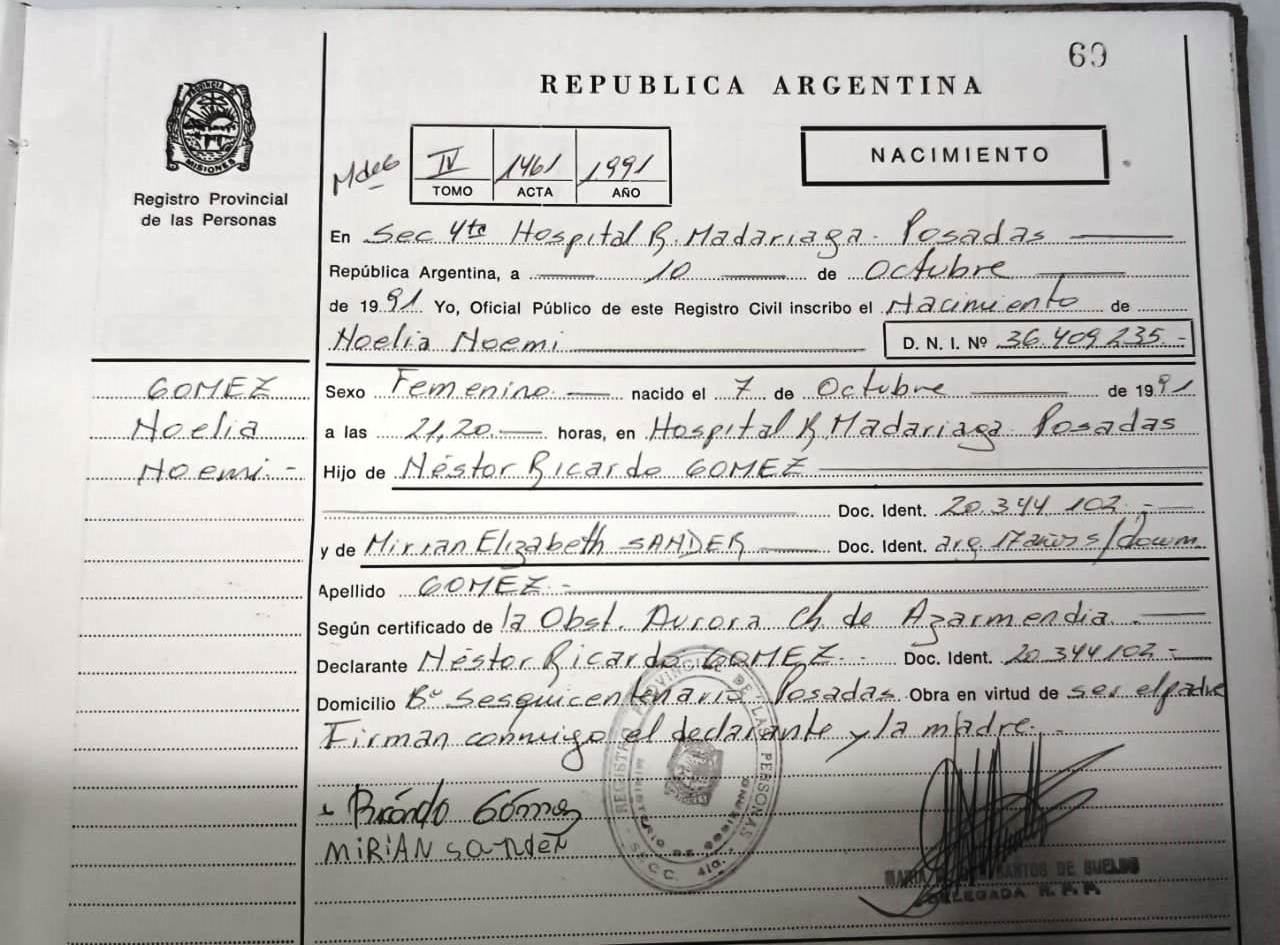 69
REPUBLICA ARGENTINA
PROVINCIA DE MISIONES
Registro Provincial
de las Personas
IV 1461 1991
TOMO ACTA AÑO
NACIMIENTO
En Sec 4ta Hospital R. Madariaga - Posadas
República Argentina, a 10 de Octubre
de 1991 Yo, Oficial Público de este Registro Civil inscribo el Nacimiento de
Noelia Noemi D. N. I. Nº 36.409.235.-
GOMEZ
Noelia
Noemi.-
Sexo Femenino.- nacido el 7 de Octubre de 1991
a las 21,20.- horas, en Hospital R. Madariaga Posadas
Hijo de Néstor Ricardo GOMEZ
Doc. Ident. 20.344.102.-
y de Mirian Elizabeth SANDER Doc. Ident. arg 17 años s/docum.
Apellido GOMEZ.-
Según certificado de la Obst. Aurora Ch de Azarmendia.-
Declarante Néstor Ricardo GOMEZ.- Doc. Ident. 20.344.102.-
Domicilio Bº Sesquicentenario Posadas. Obra en virtud de ser el padre
Firman conmigo el declarante y la madre.-
Gómez
MIRIAN Sander
REGISTRO PROVINCIAL DE LAS PERSONAS
MINISTERIO DE GOBIERNO
SECC. 4ta.
DELEGADA R. P. P.